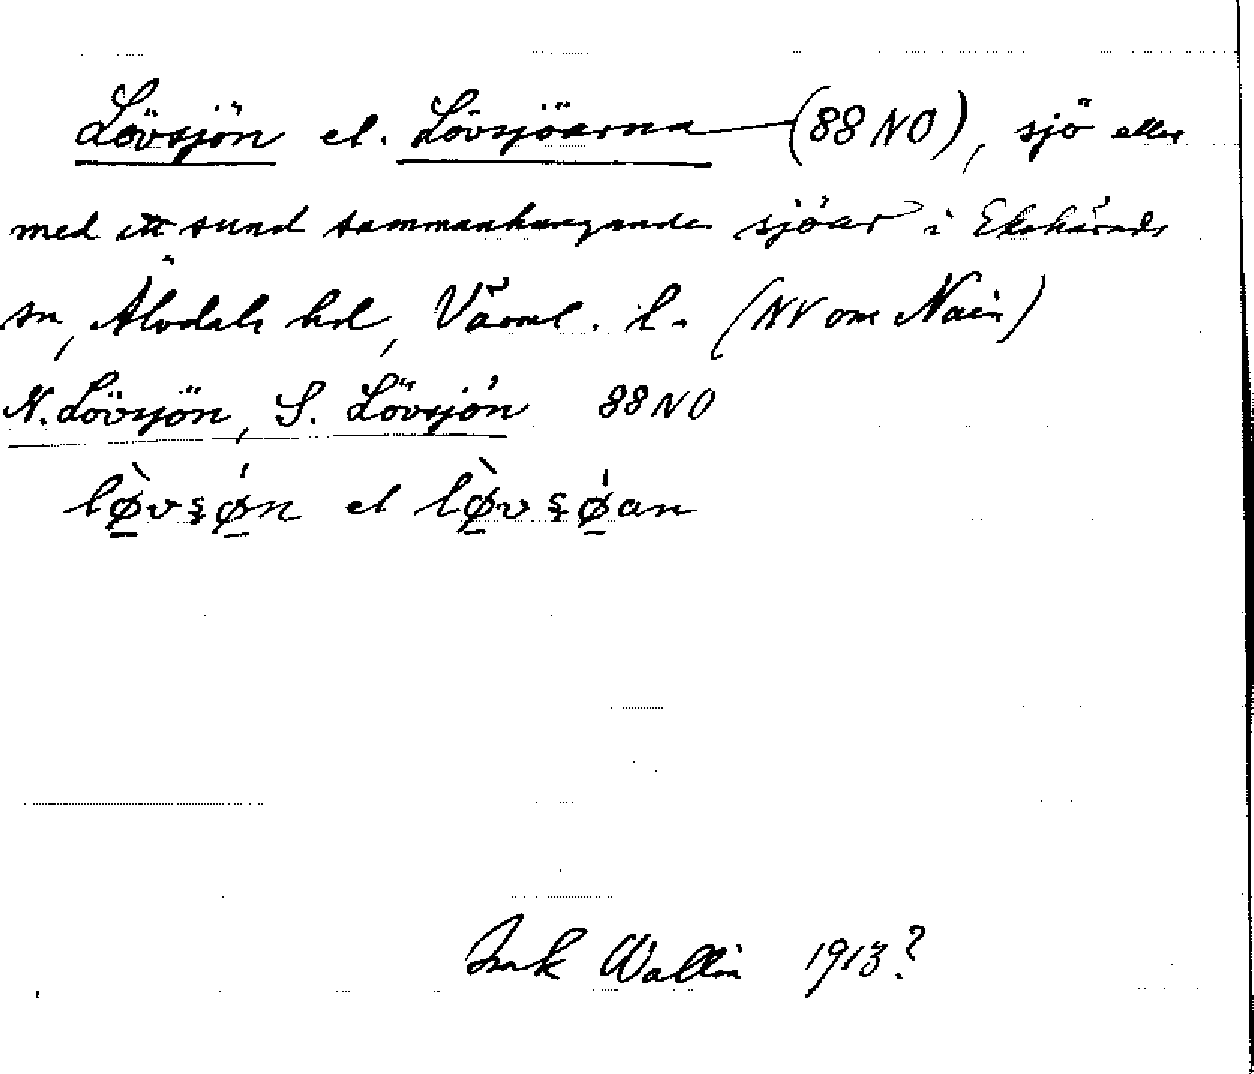 Lövsjön el. Lövsjöarna (88 NO), sjö eller
med ett sund sammanhängande sjöar i Ekshärads
sn, Älvdals hd, Värml. l. (NV om Nain)
N. Lövsjön, S. Lövsjön 88 NO
lø̀vʂøn el lø̀vʂøan
Wallin 1913?